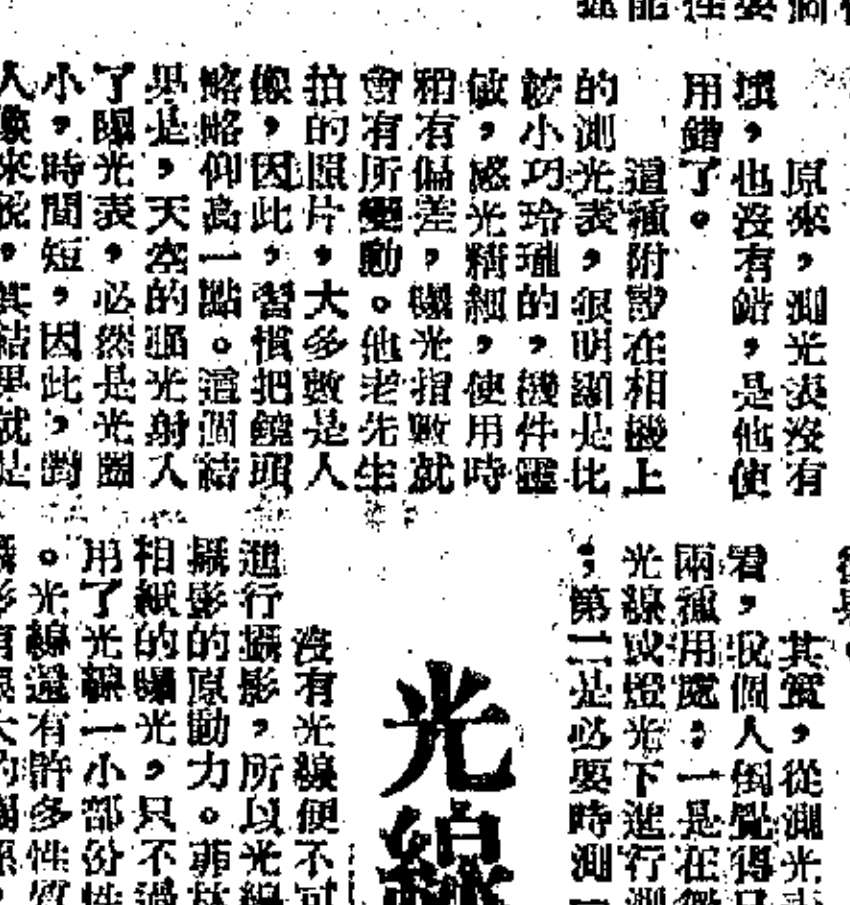 原來，測光表沒有
壞，也沒有錯，是他使
用錯了。
這種附設在相機上
的測光表，很明顯是比
較小巧玲瓏的，機件靈
敏，感光精細，使用時
稍有偏差，曝光指數就
會有所變動。他老先生
拍的照片，大多數是人
像，因此，習慣把鏡頭
略略仰高一點。這個結
果是，天空的強光射入
了曝光表，必然是光圈
小，時間短，因此，對
人像來說，其結果就是
其實，從測光表
看，我個人倒覺得只
兩種用處：一是在
光線或燈光下進行測
；第二是必要時測一
光線
沒有光線便不可
進行攝影，所以光線
攝影的原動力。菲林
相紙的曝光，只不過
用了光線一小部份性
。光線還有許多性質